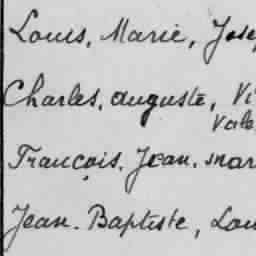 Louis. Marie, Jose
Charles. auguste, Vi
Vale
François. Jean. mar
Jean. Baptiste, Lou